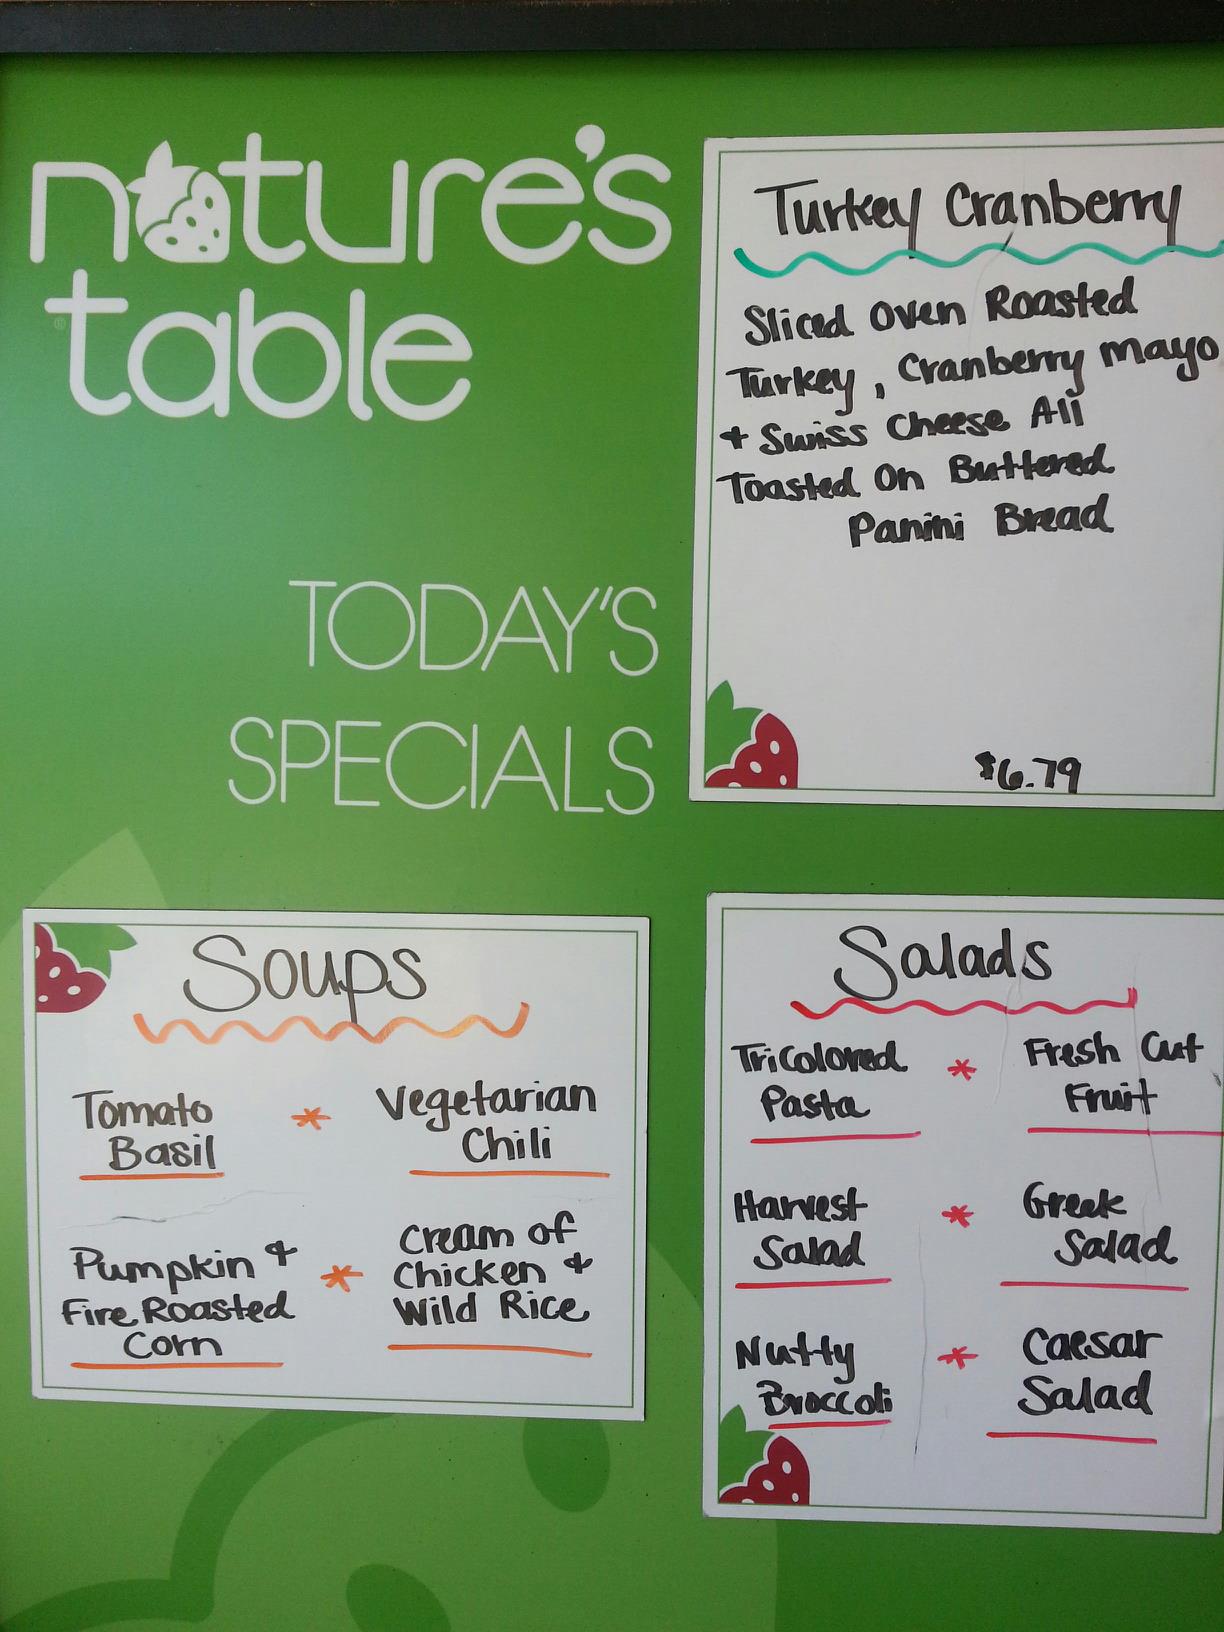 nature's
table
®
TODAY'S
SPECIALS
Turkey Cranberry
Sliced Oven Roasted
Turkey, Cranberry Mayo
+ Swiss Cheese All
Toasted On Buttered
Panini Bread
$6.79
Soups
Tomato
Basil
*
Vegetarian
Chili
Pumpkin +
Fire Roasted
Corn
*
Cream of
Chicken +
Wild Rice
Salads
Tricolored
Pasta
*
Fresh Cut
Fruit
Harvest
Salad
*
Greek
Salad
Nutty
Broccoli
*
Caesar
Salad